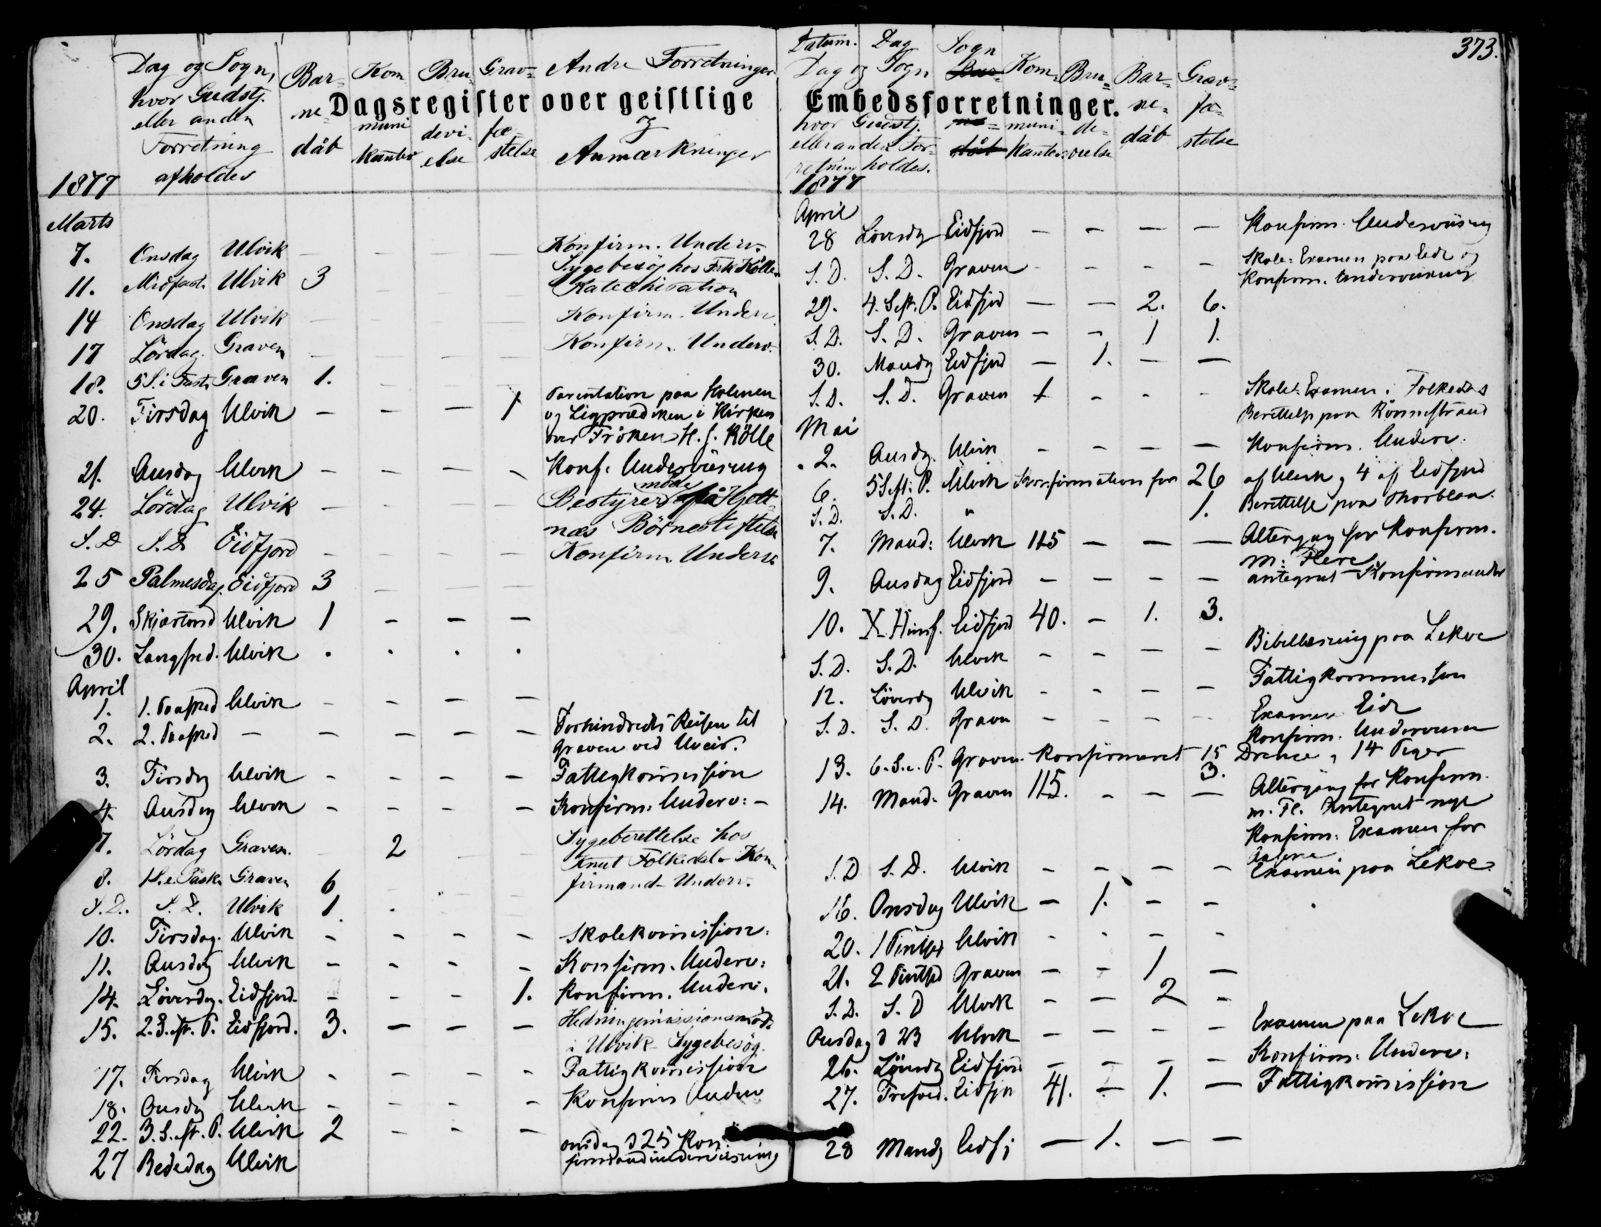 373.
Dagsregister over geistlige Embedsforretninger.
Dag og Sogn, hvor Gudstj. eller anden Forretning afholdes
Bar-ne-dåb
Kom muni kanter
Bru-devi-else
Grav-fæ-stelse
Andre Forretninger & Anmærkninger
1877
Marts
7. Onsdag Ulvik — Konfirm. Underv.
11. Midfast. Ulvik 3 Sygebesøg hos Katechisation
14 Onsdag Ulvik — Konfirm. Underv.
17 Lördag Graven — Konfirm. Underv.
18. 5 S. i Fast. Graven 1.
20. Tirsdag Ulvik — — — 1 Parentation paa Holmen
og Ligprædiken i Kirken
over Fröken H. J. Kölle
21. Onsdag Ulvik — — — — Konf. Underviisning
24. Lördag Ulvik — — — — Bestyrermøde på Hjelt-
næs Börnestiftelse
S. D. S. D. Eidfjord — — — — Konfirm. Underv.
25 Palmesdag Eidfjord 3 — — —
29. Skjærtorsd Ulvik 1 — — —
30. Langfred. Ulvik . . . .
April
1. 1. Paaskd Ulvik — — — —
2. 2. Paaskd — — — — — Forhindredes Reisen til
Graven ved Uveir.
3. Tirsdag Ulvik — — — — Fattigkomission
4. Onsdag Ulvik — — — — Konfirm: Underv: —
7. Lördag Graven. — 2 — — Sygeberettelse hos
Knut Folkedal Kon-
firmand-Underv.
8. 1 S. e. Påsk. Graven 6
S. D. S. D. Ulvik 1.
10. Tirsdag. Ulvik — — — — Skolekomission.
11. Onsdag Ulvik — — — — Konfirm. Underv:
14. Löverdag. Eidfjord — — — 1. Konfirm. Underv.
15. 2. S. eft. P. Eidfjord. 3. — — — Hedningemissionsmöde
i Ulvik Sygebesög.
17. Tirsdag Ulvik — — — — Fattigkomission
18. Onsdag Ulvik — — — — Konfirm Underv
22. 3. S. eft. P. Ulvik 2 — — —
27 Bededag Ulvik onsdag d 25 Kon-
firmandunderviisning
Datum. Dag Sogn
Dag og Sogn hvor Gudstj. eller anden For-retning holdes.
Kom-muni-kanter
Bru-de-vielse
Bar-ne-dåb
Grav-fæ-stelse
1877
April
28 Löverdag Eidfjord — — — — Konfirm. Underviisning
S. D. S. D. Graven — — — — Skole-Examen paa Eide og
Konfirm. Underviisning
29. 4. S. eft. P. Eidfjord — — 2. 6.
S. D. S. D. Graven — — 1 1.
30. Mandag Eidfjord — 1. — —
S. D. S. D. Graven 1 — — — Skole-Examen i Folkedal
Berettelse paa Rönnestrand
Mai
2. Onsdag. Ulvik — — — — Konfirm. Underv.
6. 5 S. eft. P. Ulvik Konfirmation for 26 af Ulvik, 4 af Eidfjord
S. D. S. D. " 1. Berettelse paa
7. Mand: Ulvik 115 — — — Altergang for Konfirm.
m. Flere
9. Onsdag Eidfjord — — — — antegnet Konfirmander
10. X Himf. Eidfjord 40. — 1. 3.
S. D. S. D. Ulvik — — — — Bibellæsning paa Lekve
12. Löverdag Ulvik — — — — Fattigkommission
S. D. S. D. Graven — — — — Examen Eide
Konfirm. Underviisn
13. 6. S. e. P. Graven Konfirmeret 15 Drenge, 14 Piger
3.
14. Mand. Graven 115. — — — Altergang for Konfirm.
m. Fl. Antegnet nye
Konfirm: Examen for
S. D S. D. Ulvik — — — — Examen paa Lekve
16. Onsdag Ulvik — 1. — —
20. 1 Pintsed Ulvik — — — —
21. 2 Pintsed Graven — — 1 —
S. D. S. D Ulvik — — 2 —
Onsdag d 23 Ulvik — — — — Examen paa Lekve
26. Löverdag Eidfjord — — — — Konfirm: Underv:
27. Trefold. Eidfjor 41. — 1. — Fattigkomission
28 Mandag Eidfj — 1. — —